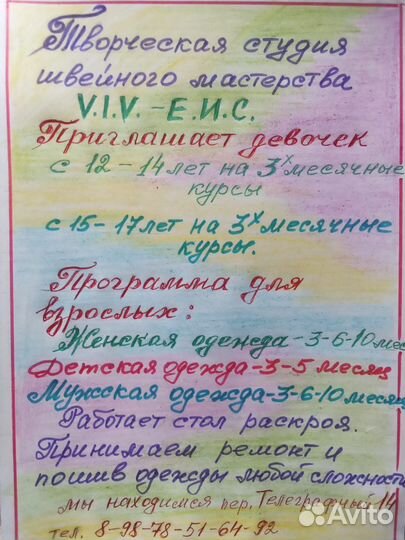 Творческая студия
швейного мастерства
V.I.V. - Е.И.С.
Приглашает девочек
с 12 - 14 лет на 3х месячные
курсы
с 15 - 17 лет на 3х месячные
курсы.
Программа для
взрослых:
Женская одежда - 3-6-10 мес
Детская одежда - 3-5 месяц
Мужская одежда - 3-6-10 месяц
Работает стол раскроя.
Принимаем ремонт и
пошив одежды любой сложности
мы находимся пер. Телеграфный 14
тел. 8-98-78-51-64-92
Avito